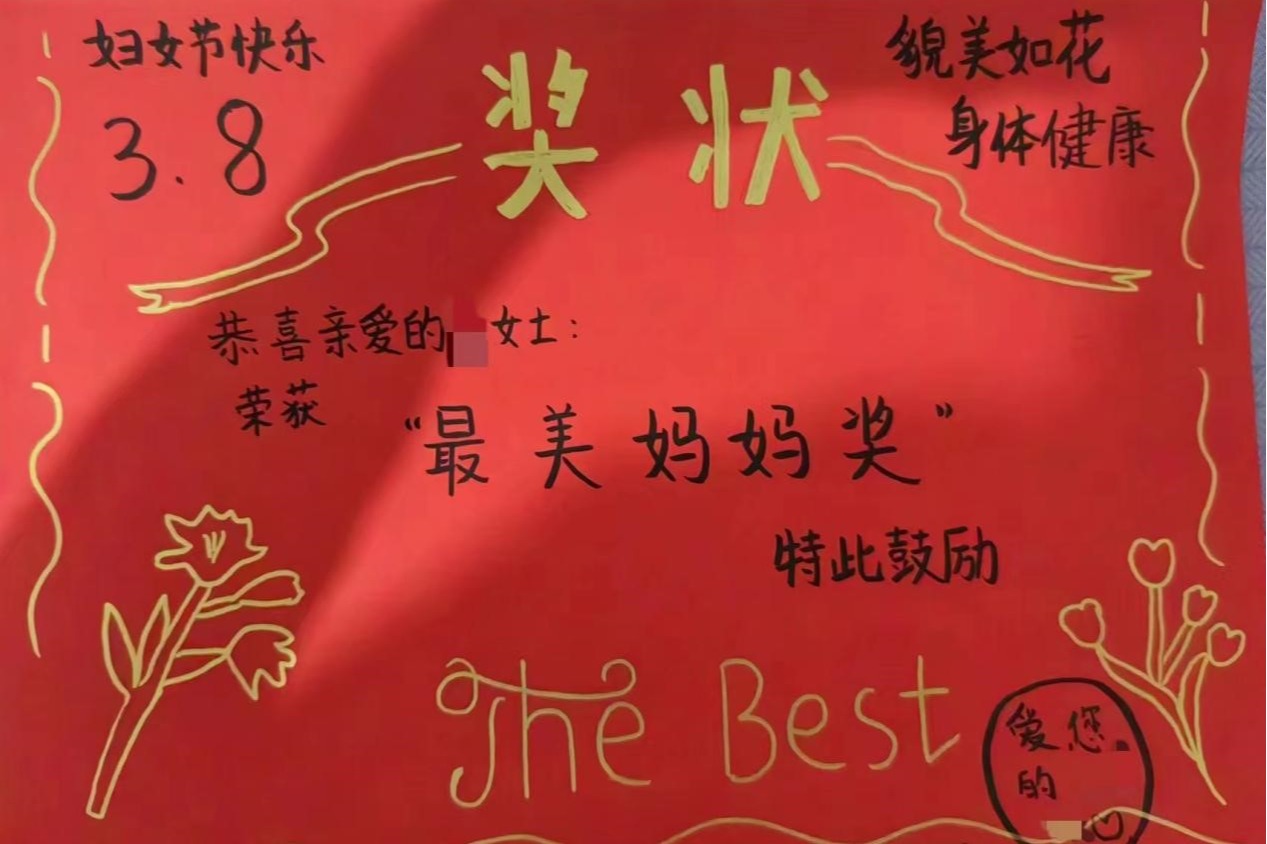 妇女节快乐
3.8
奖状
貌美如花
身体健康
恭喜亲爱的 女士:
荣获
“最美妈妈奖”
特此鼓励
The Best
爱您
的